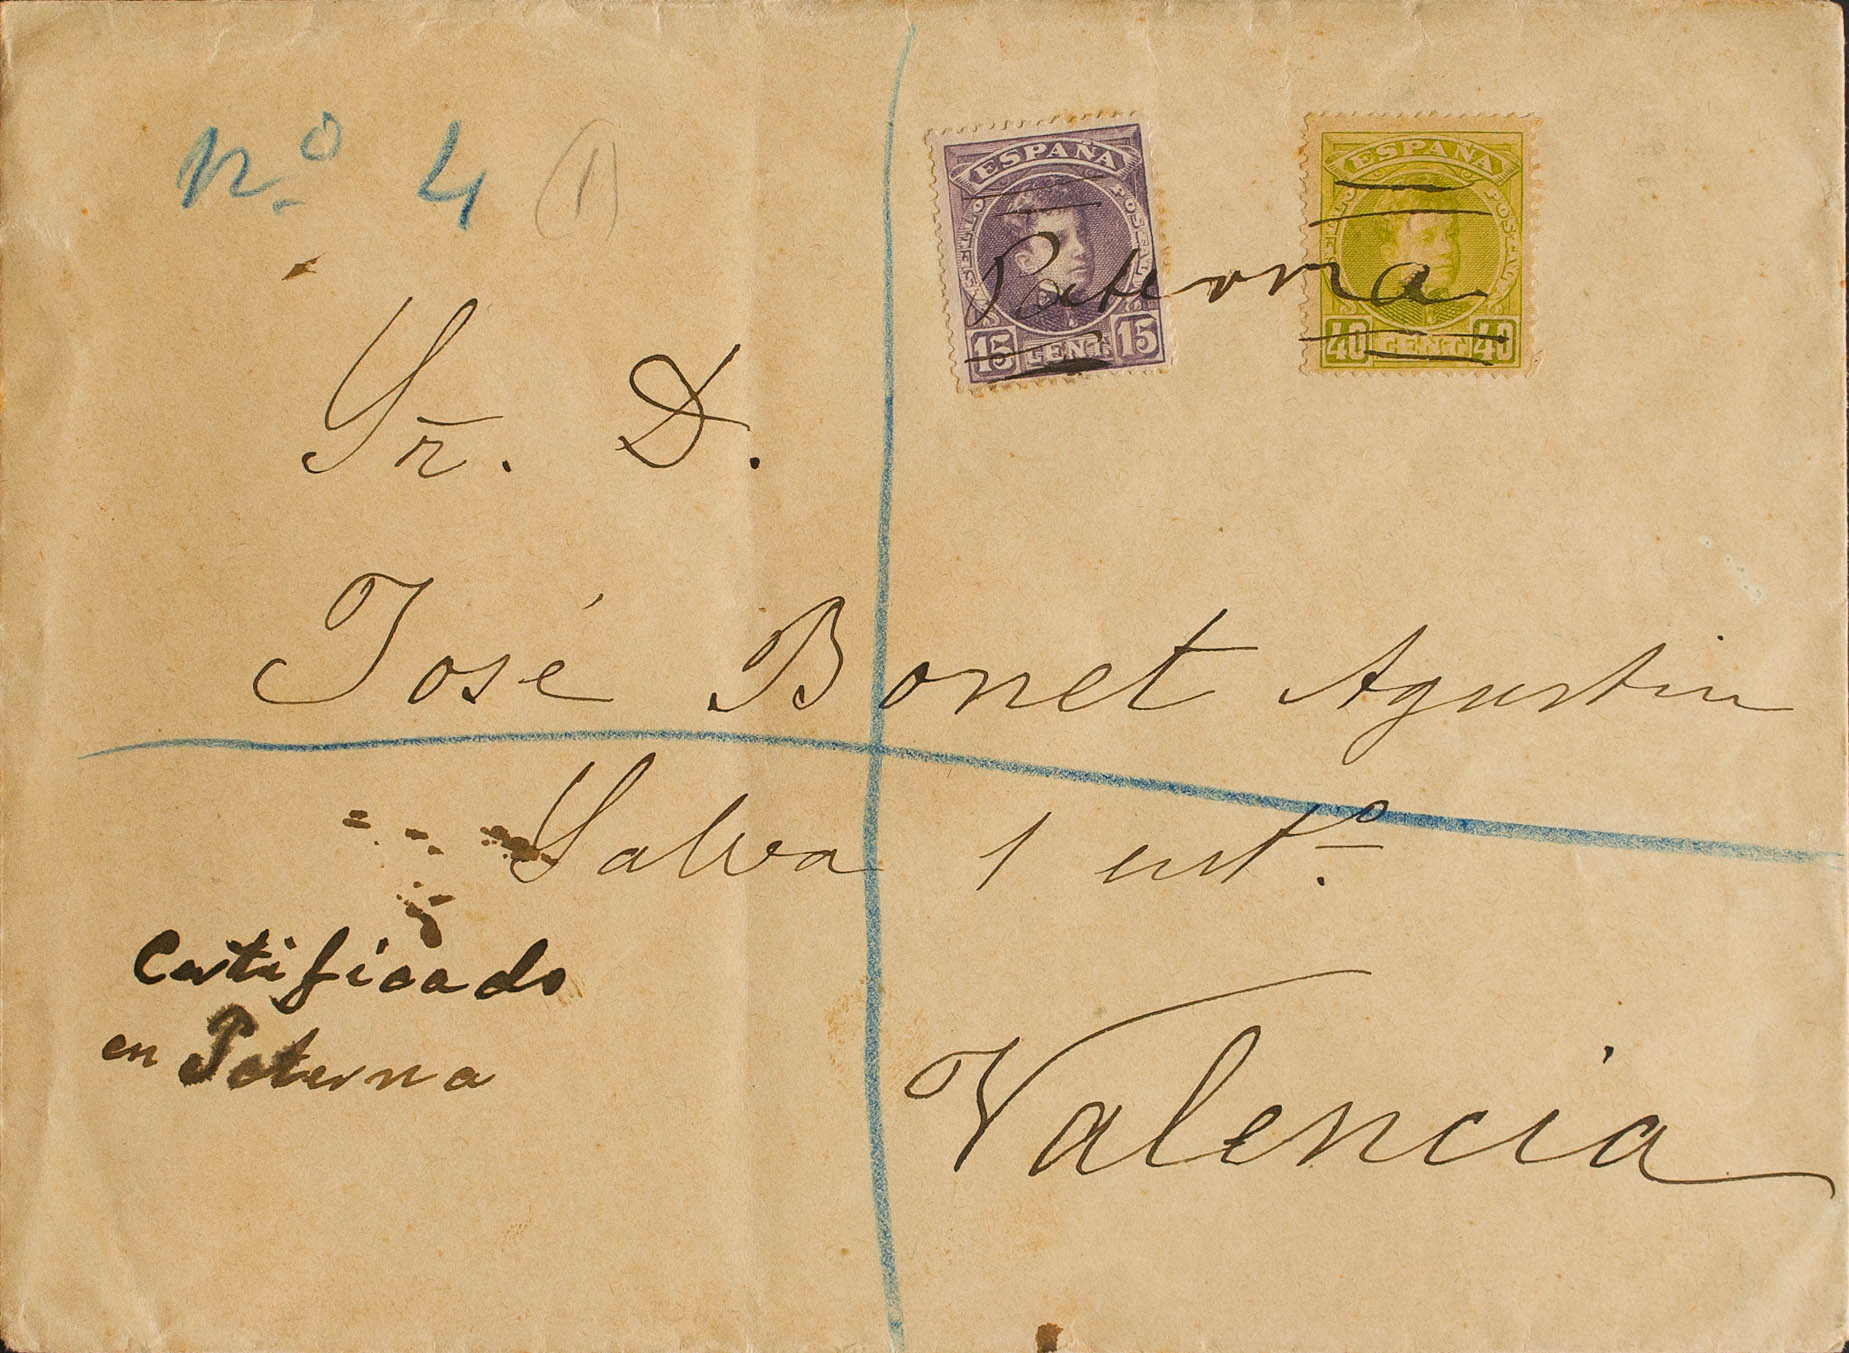 nº 4 (1)
ESPAÑA
15 CENT. 15
ESPAÑA
40 CENT. 40
Paterna
Sr. D.
José Bonet Agustin
Salva 1 entº
Certificado
en Paterna
Valencia